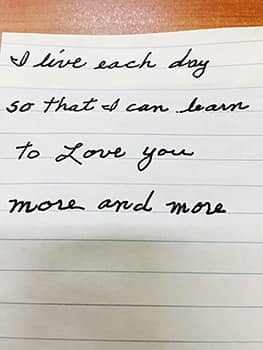 I live each day
so that I can learn
to Love you
more and more